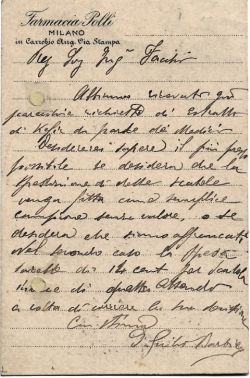 Farmacia Polli
MILANO
in Carrobio Ang. Via Stampa
Abbiamo ricevuto già
parecchie richieste di estratto
di Kefir da parte dei Medici
Desidererei sapere il più pres
possibile se desidera che la
spedizione di dette scatole
venga fatta come semplice
campione senza valore, o se
desidera che siano affrancate
Nel secondo caso la spesa
sarebbe di 10 cent per scatola
di quella
Con stima